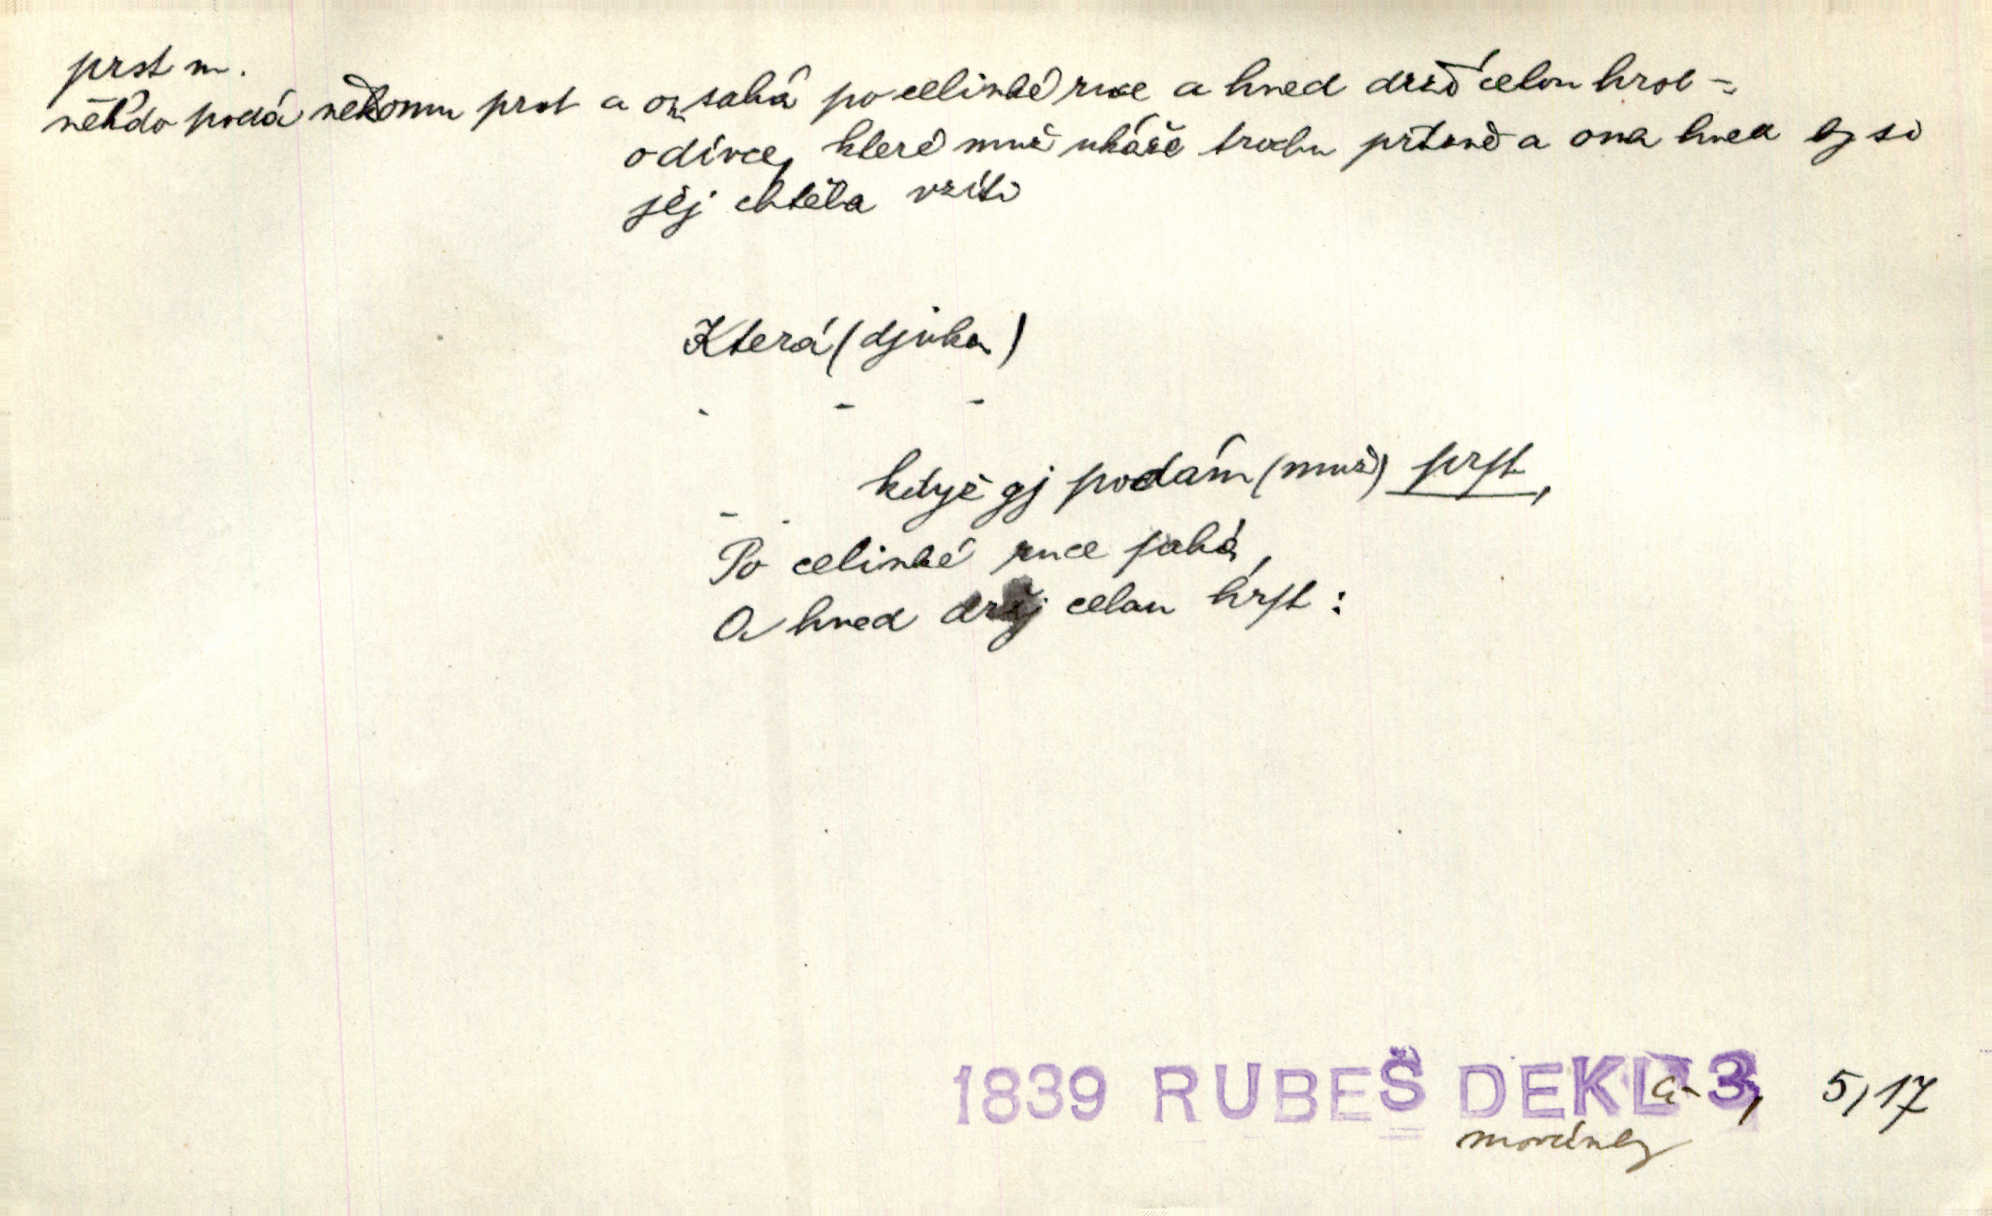 prst m.
někdo podá někomu prst a on sahá po celinké ruce a hned drží celou hrst =
o dívce, které muž ukáže trochu přízně a ona hned by si
jej chtěla vzíti
Která (djvka)
- - -
když gj podám (muž) prſt,
- -
Po celinké ruce ſahá,
A hned držj celau hrſt :
1839 RUBEŠ DEKLa- 3, 5, 17
movánky